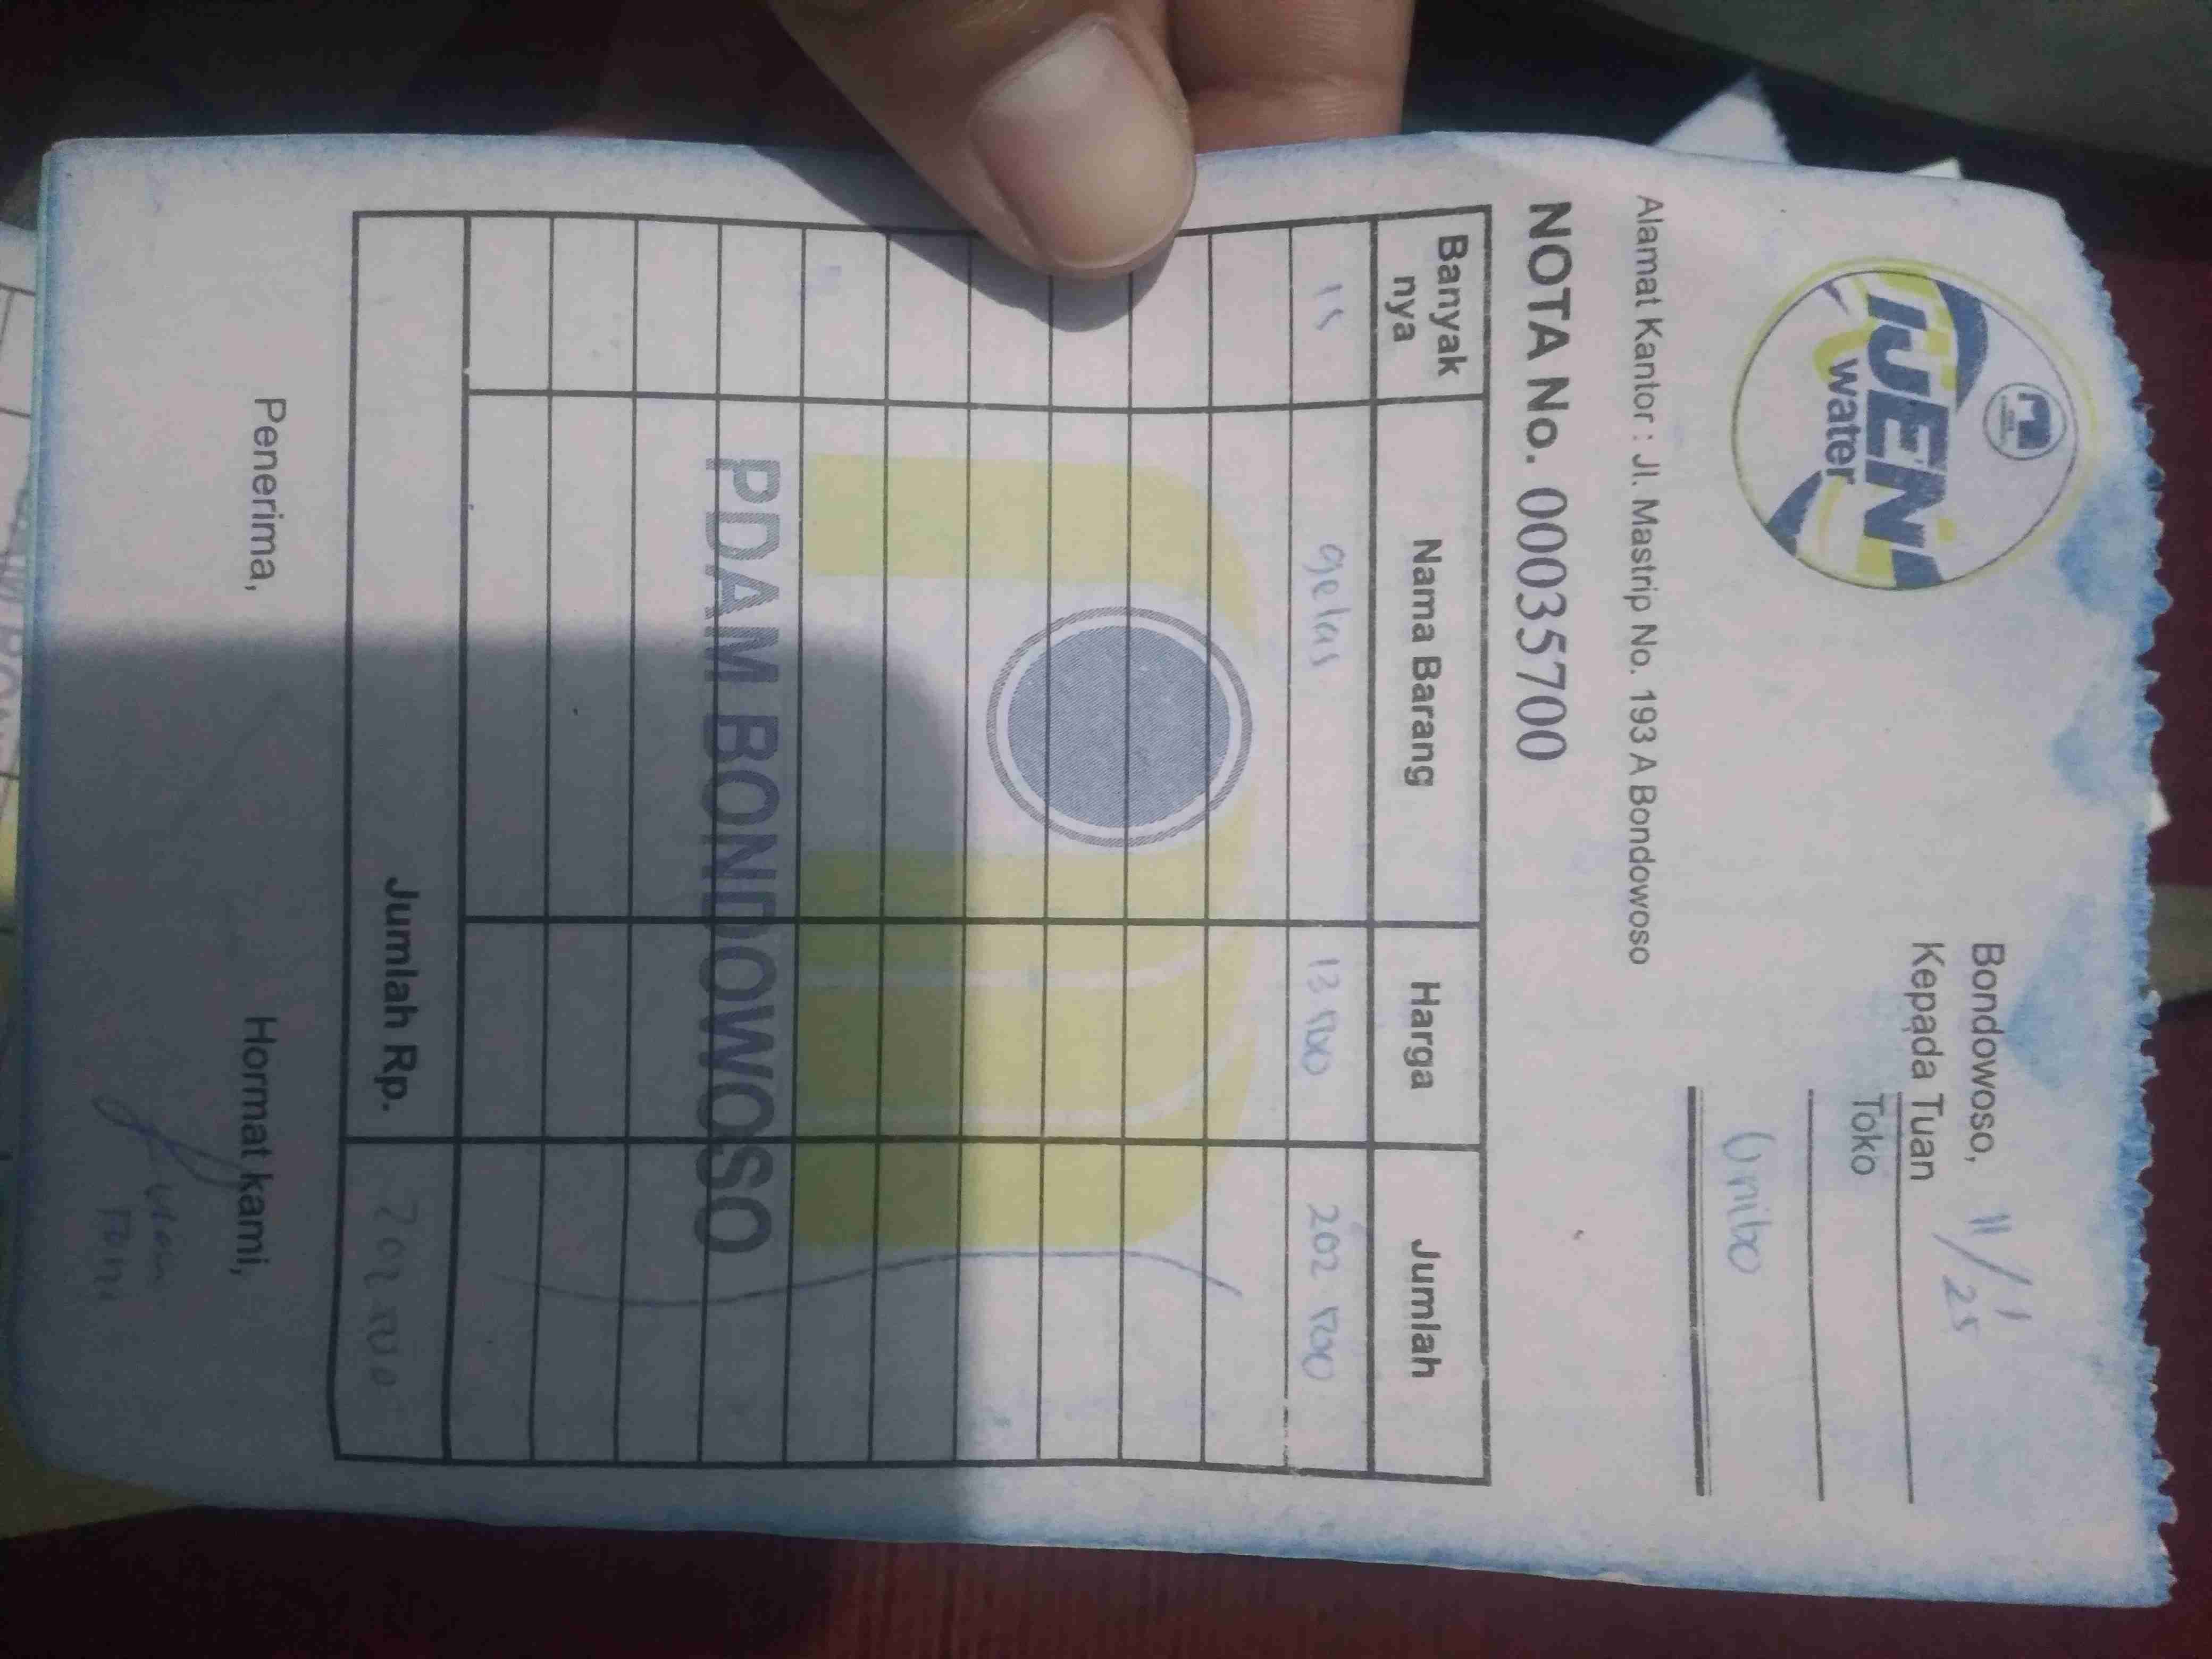 IJEN
water
Bondowoso, 11/1 25
Kepada Tuan
Toko
Unibo
Alamat Kantor : Jl. Mastrip No. 193 A Bondowoso
NOTA No. 00035700
Banyak nya Nama Barang Harga Jumlah
15 gelas 13 500 202 500
PDAM BONDOWOSO
Jumlah Rp. 202 500
Penerima, Hormat kami,
Toni